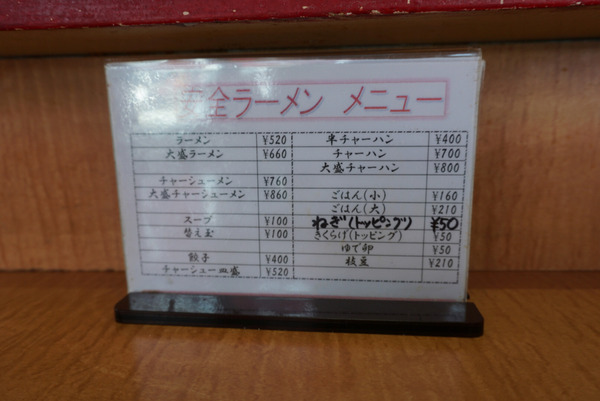 全ラーメン メニュー
ラーメン ¥520
大盛ラーメン ¥660
チャーシューメン ¥760
大盛チャーシューメン ¥860
スープ ¥100
替え玉 ¥100
餃子 ¥400
チャーシュー皿盛 ¥520
半チャーハン ¥400
チャーハン ¥700
大盛チャーハン ¥800
ごはん(小) ¥160
ごはん(大) ¥210
ねぎ(トッピング) ¥50
きくらげ(トッピング) ¥50
ゆで卵 ¥50
枝豆 ¥210